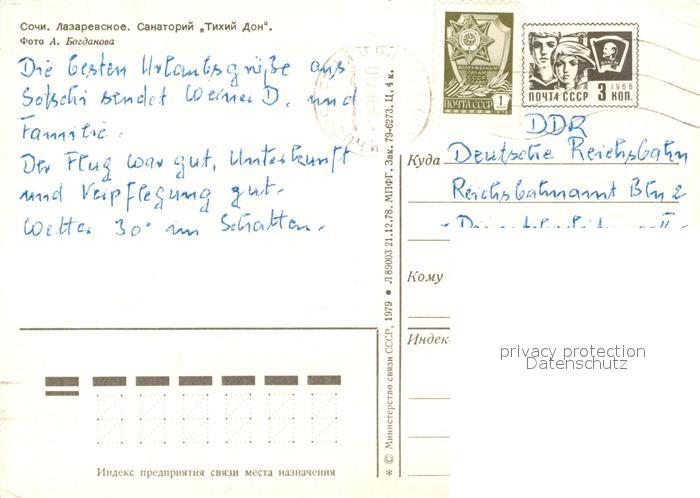 Сочи. Лазаревское. Санаторий „Тихий Дон".
Фото А. Богданова
Die besten Urlaubsgrüße aus
Sotschi sendet Werner D. und
Familie.
Der Flug war gut, Unterkunft
und Verpflegung gut.
Wetter 30° im Schatten.
* © Министерство связи СССР, 1979 ● Л 89003 21.12.78. МПФГ. Зак. 79-6273. Ц. 4 к.
ПОЧТА СССР 1
1966
ПОЧТА СССР 3 КОП.
DDR
Куда Deutsche Reichsbahn
Reichsbahnamt Bln 2
Кому
Индекс
privacy protection
Datenschutz
Индекс предприятия связи места назначения